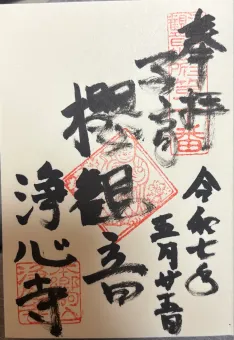 奉拝
子訓
櫻観音
浄心寺
令和七年
五月廿五日